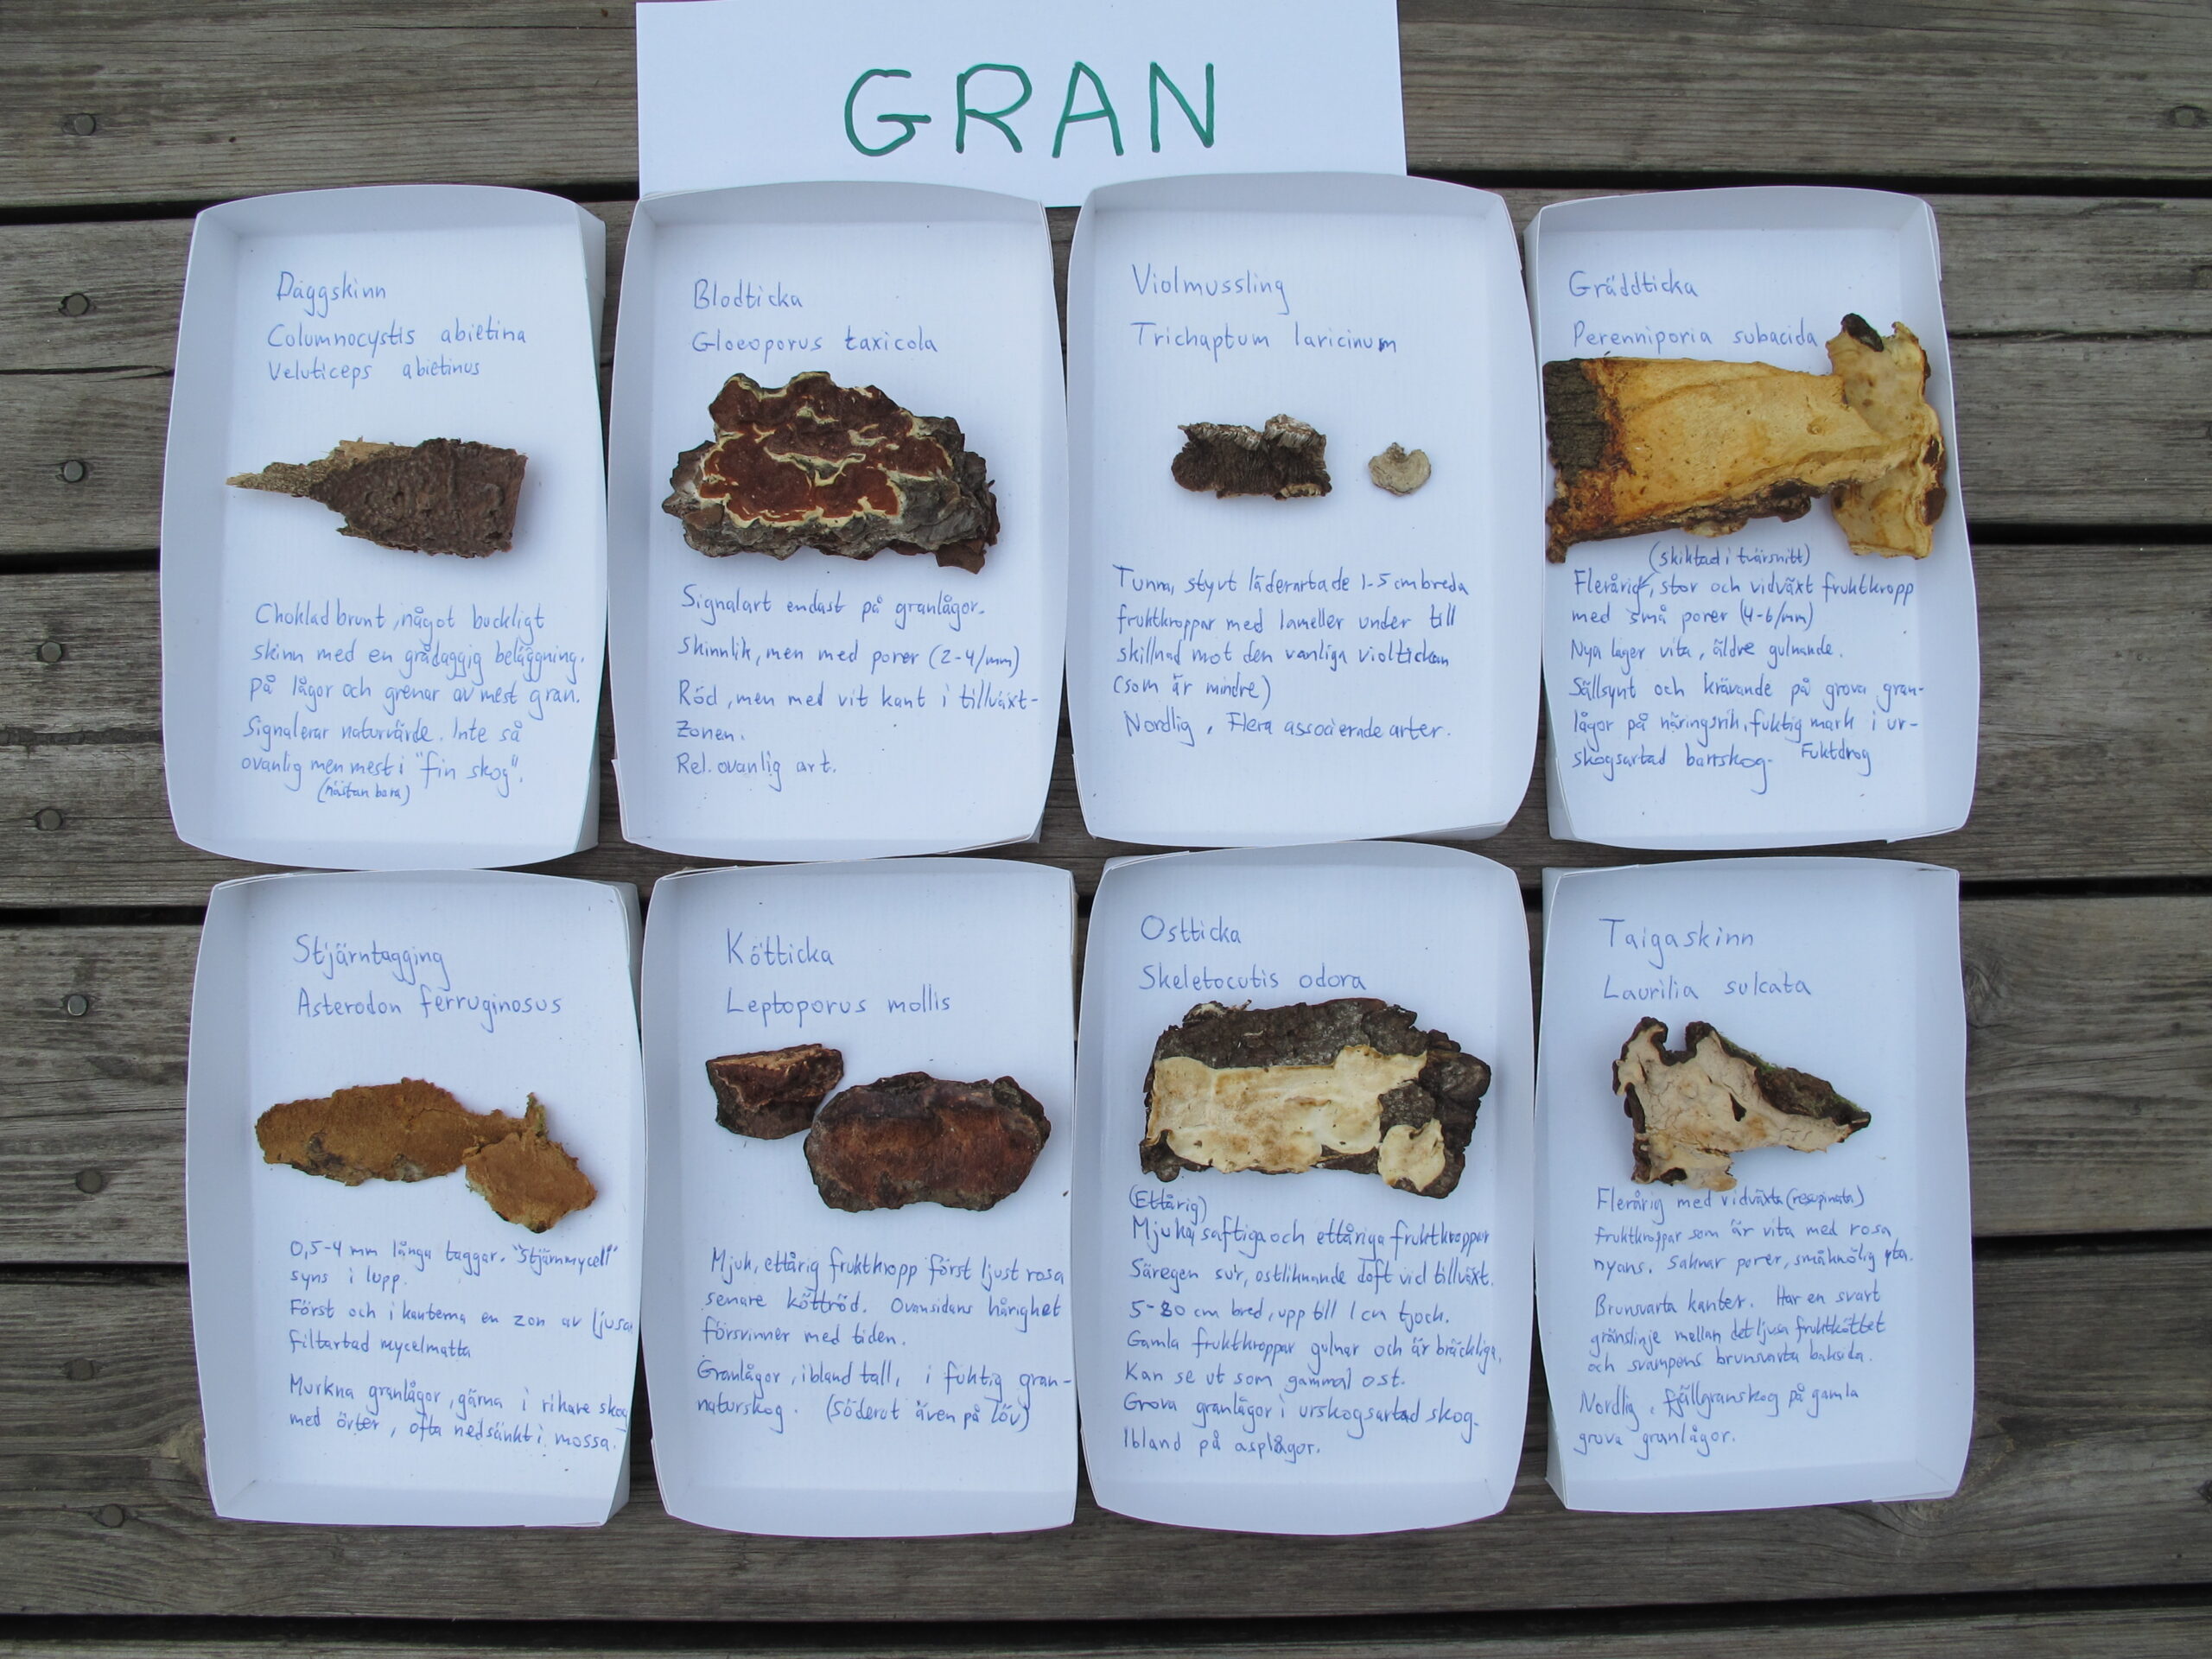 GRAN
Däggskinn
Columnocystis abietina
Veluticeps abietinus
Chokladbrunt, något buckligt
skinn med en grådaggig beläggning.
På lågor och grenar av mest gran.
Signalerar naturvärde. Inte så
ovanlig men mest i "fin skog".
(nästan bara)
Blodticka
Gloeoporus taxicola
Signalart endast på granlågor.
Skinnlik, men med porer (2-4/mm)
Röd, men med vit kant i tillväxt-
zonen.
Rel. ovanlig art.
Violmussling
Trichaptum laricinum
Tunna, styvt läderartade 1-5 cm breda
fruktkroppar med lameller under till
skillnad mot den vanliga violtickan
(som är mindre)
Nordlig. Flera associerade arter.
Gräddticka
Perenniporia subacida
(skiktad i tvärsnitt)
Flerårig, stor och vidväxt fruktkropp
med små porer (4-6/mm)
Nya lager vita, äldre gulnande.
Sällsynt och krävande på grova gran-
lågor på näringsrik, fuktig mark i ur-
skogsartad barrskog. Fuktdrog
Stjärntagging
Asterodon ferruginosus
0,5-4 mm långa taggar. "Stjärnmycell"
syns i lupp.
Först och i kanterna en zon av ljusa
filtartad mycelmatta
Murkna granlågor, gärna i rikare skog
med örter, ofta nedsänkt i mossa.
Kötticka
Leptoporus mollis
Mjuk, ettårig fruktkropp först ljust rosa
senare köttröd. Ovansidans hårighet
försvinner med tiden.
Granlågor, ibland tall, i fuktig gran-
naturskog. (Söderut även på löv)
Ostticka
Skeletocutis odora
(Ettårig)
Mjuka, saftiga och ettåriga fruktkroppar
Säregen sur, ostliknande doft vid tillväxt.
5-80 cm bred, upp till 1 cm tjock.
Gamla fruktkroppar gulnar och är bräckliga.
Kan se ut som gammal ost.
Grova granlågor i urskogsartad skog.
Ibland på asplågor.
Taigaskinn
Laurilia sulcata
Flerårig med vidväxta (resupinata)
fruktkroppar som är vita med rosa
nyans. Saknar porer, småknölig yta.
Brunsvarta kanter. Har en svart
gränslinje mellan det ljusa fruktköttet
och svampens brunsvarta baksida.
Nordlig, fjällgranskog på gamla
grova granlågor.